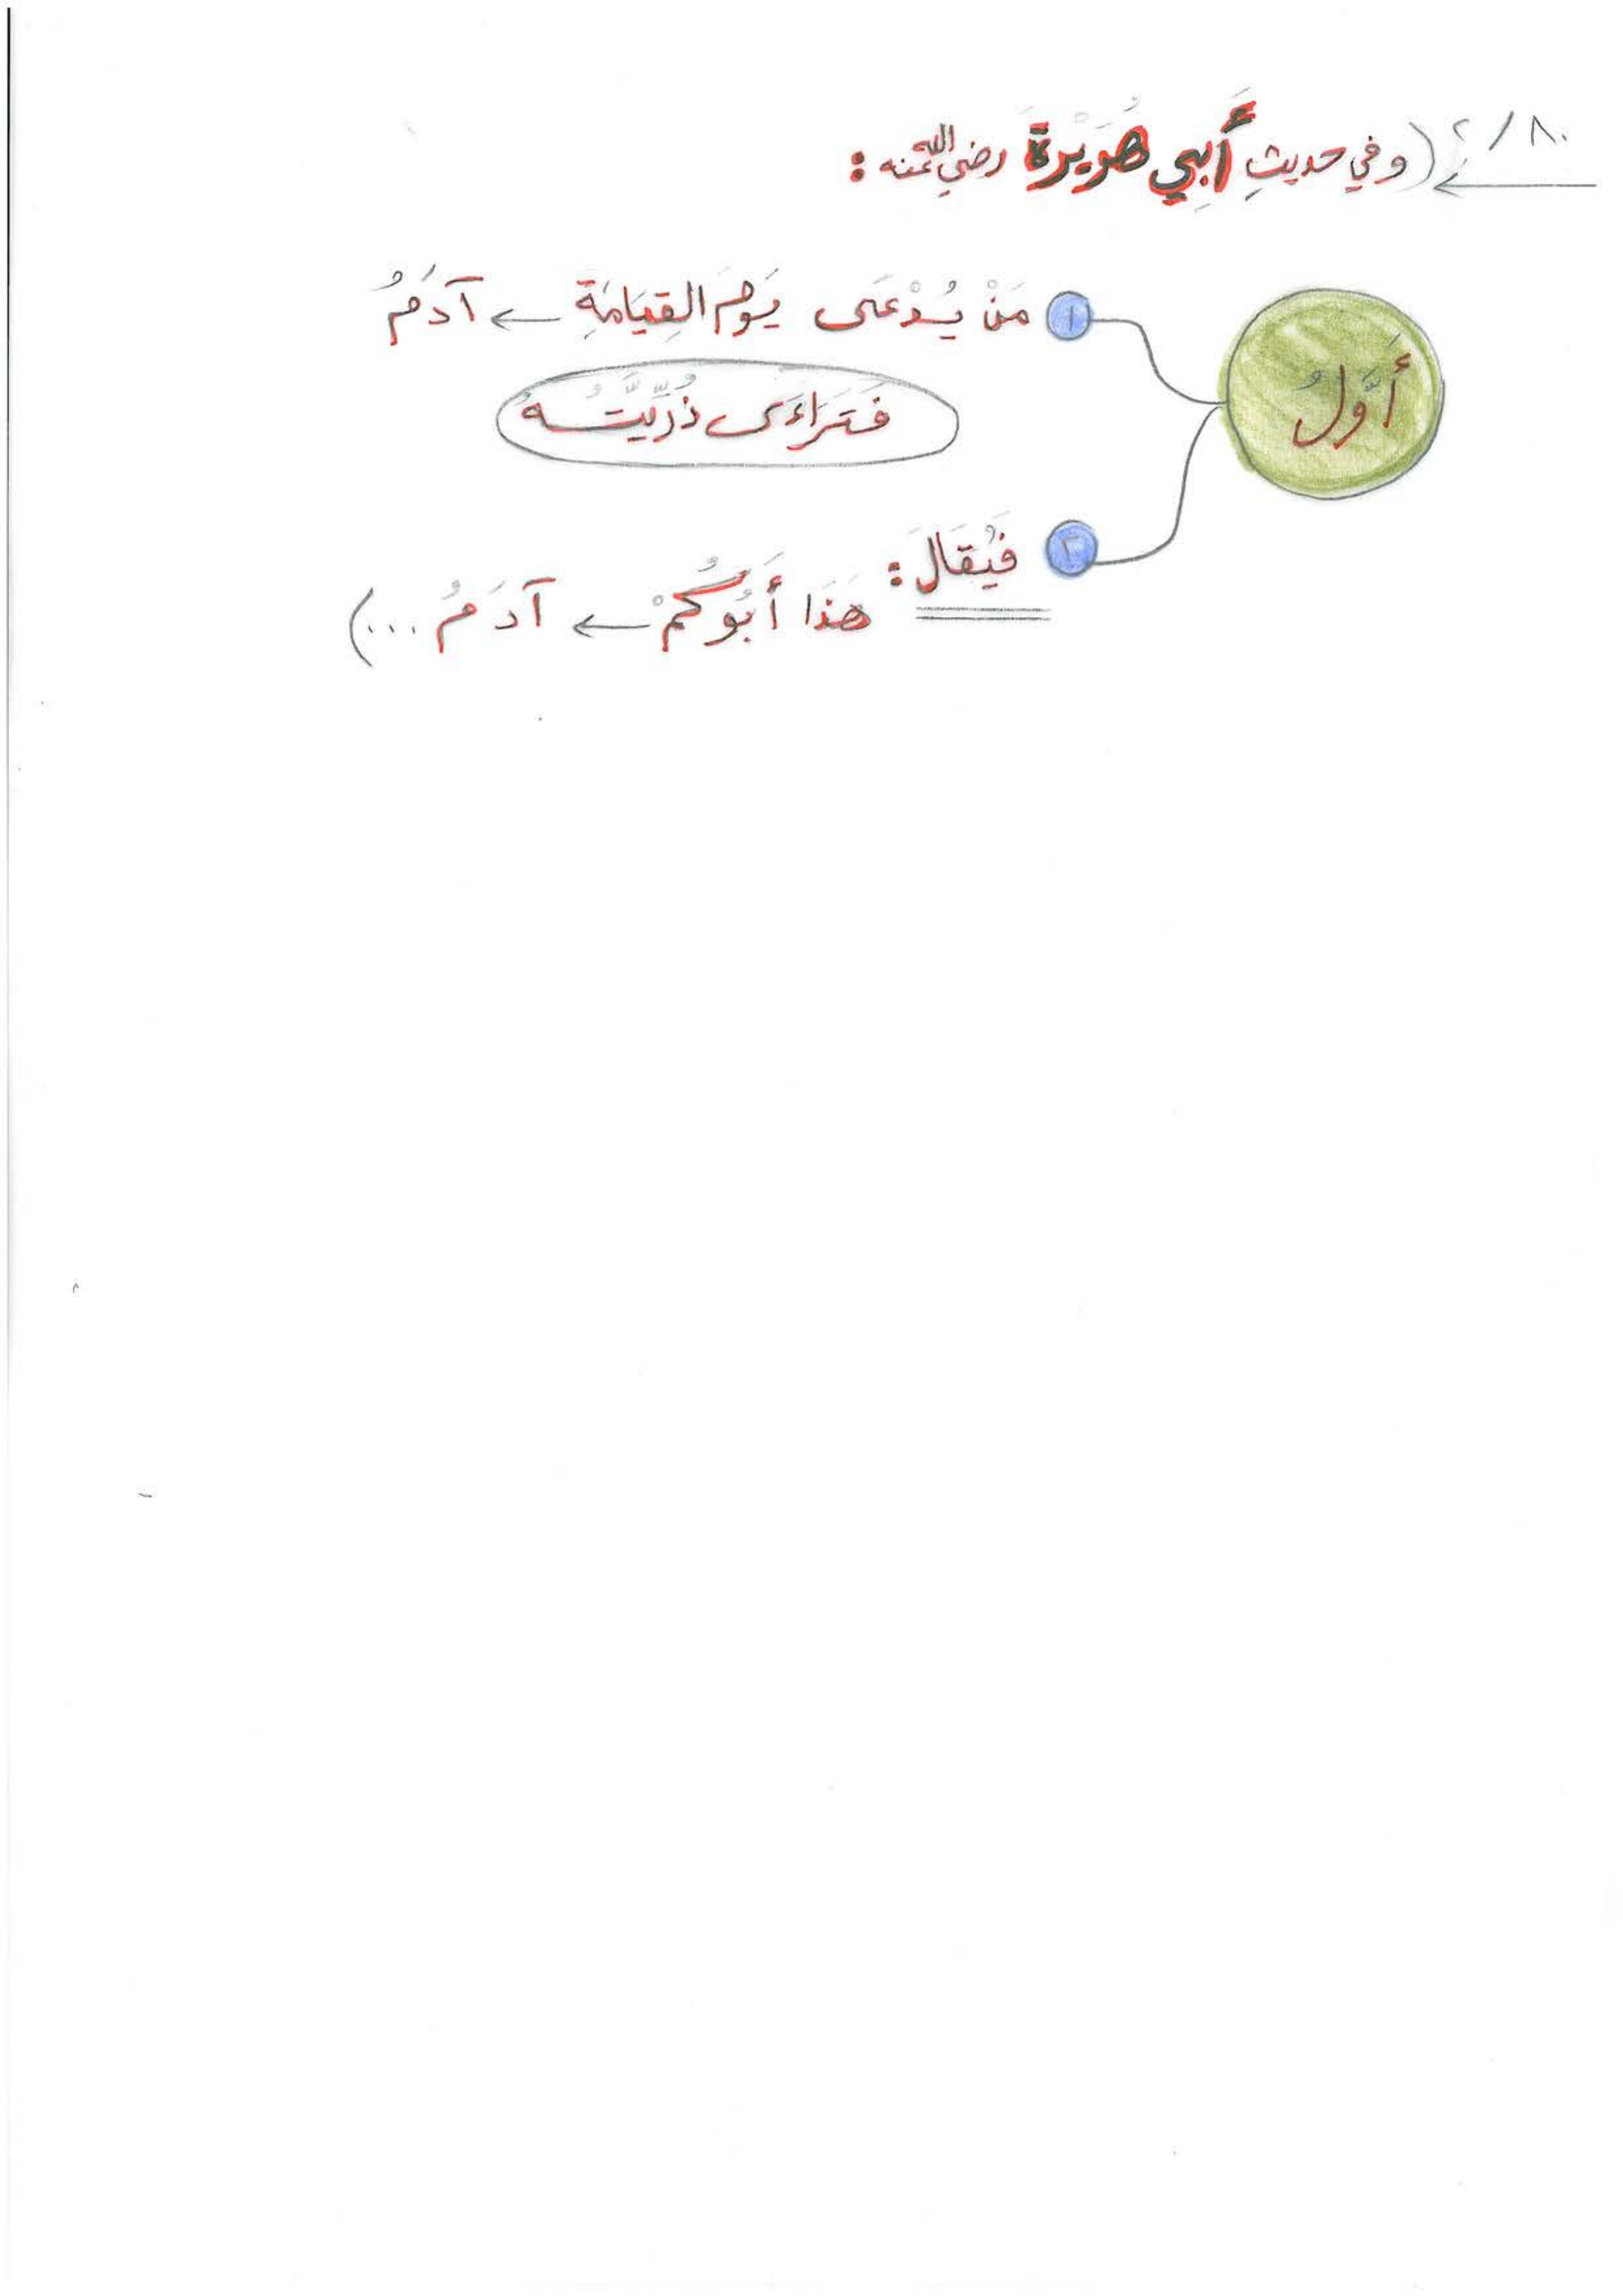 ٨٠/٢ (وفي حديثِ أَبِي هُرَيْرةَ رضي الله عنه:
أَوَّلُ
١ مَنْ يُدْعَى يَوْمَ القِيَامَةِ ← آدَمُ
فَتَرَاءَى ذُرِّيَّتُهُ
٢ فَيُقَالَ:
هَذَا أَبُوكُمْ ← آدَمُ ...)